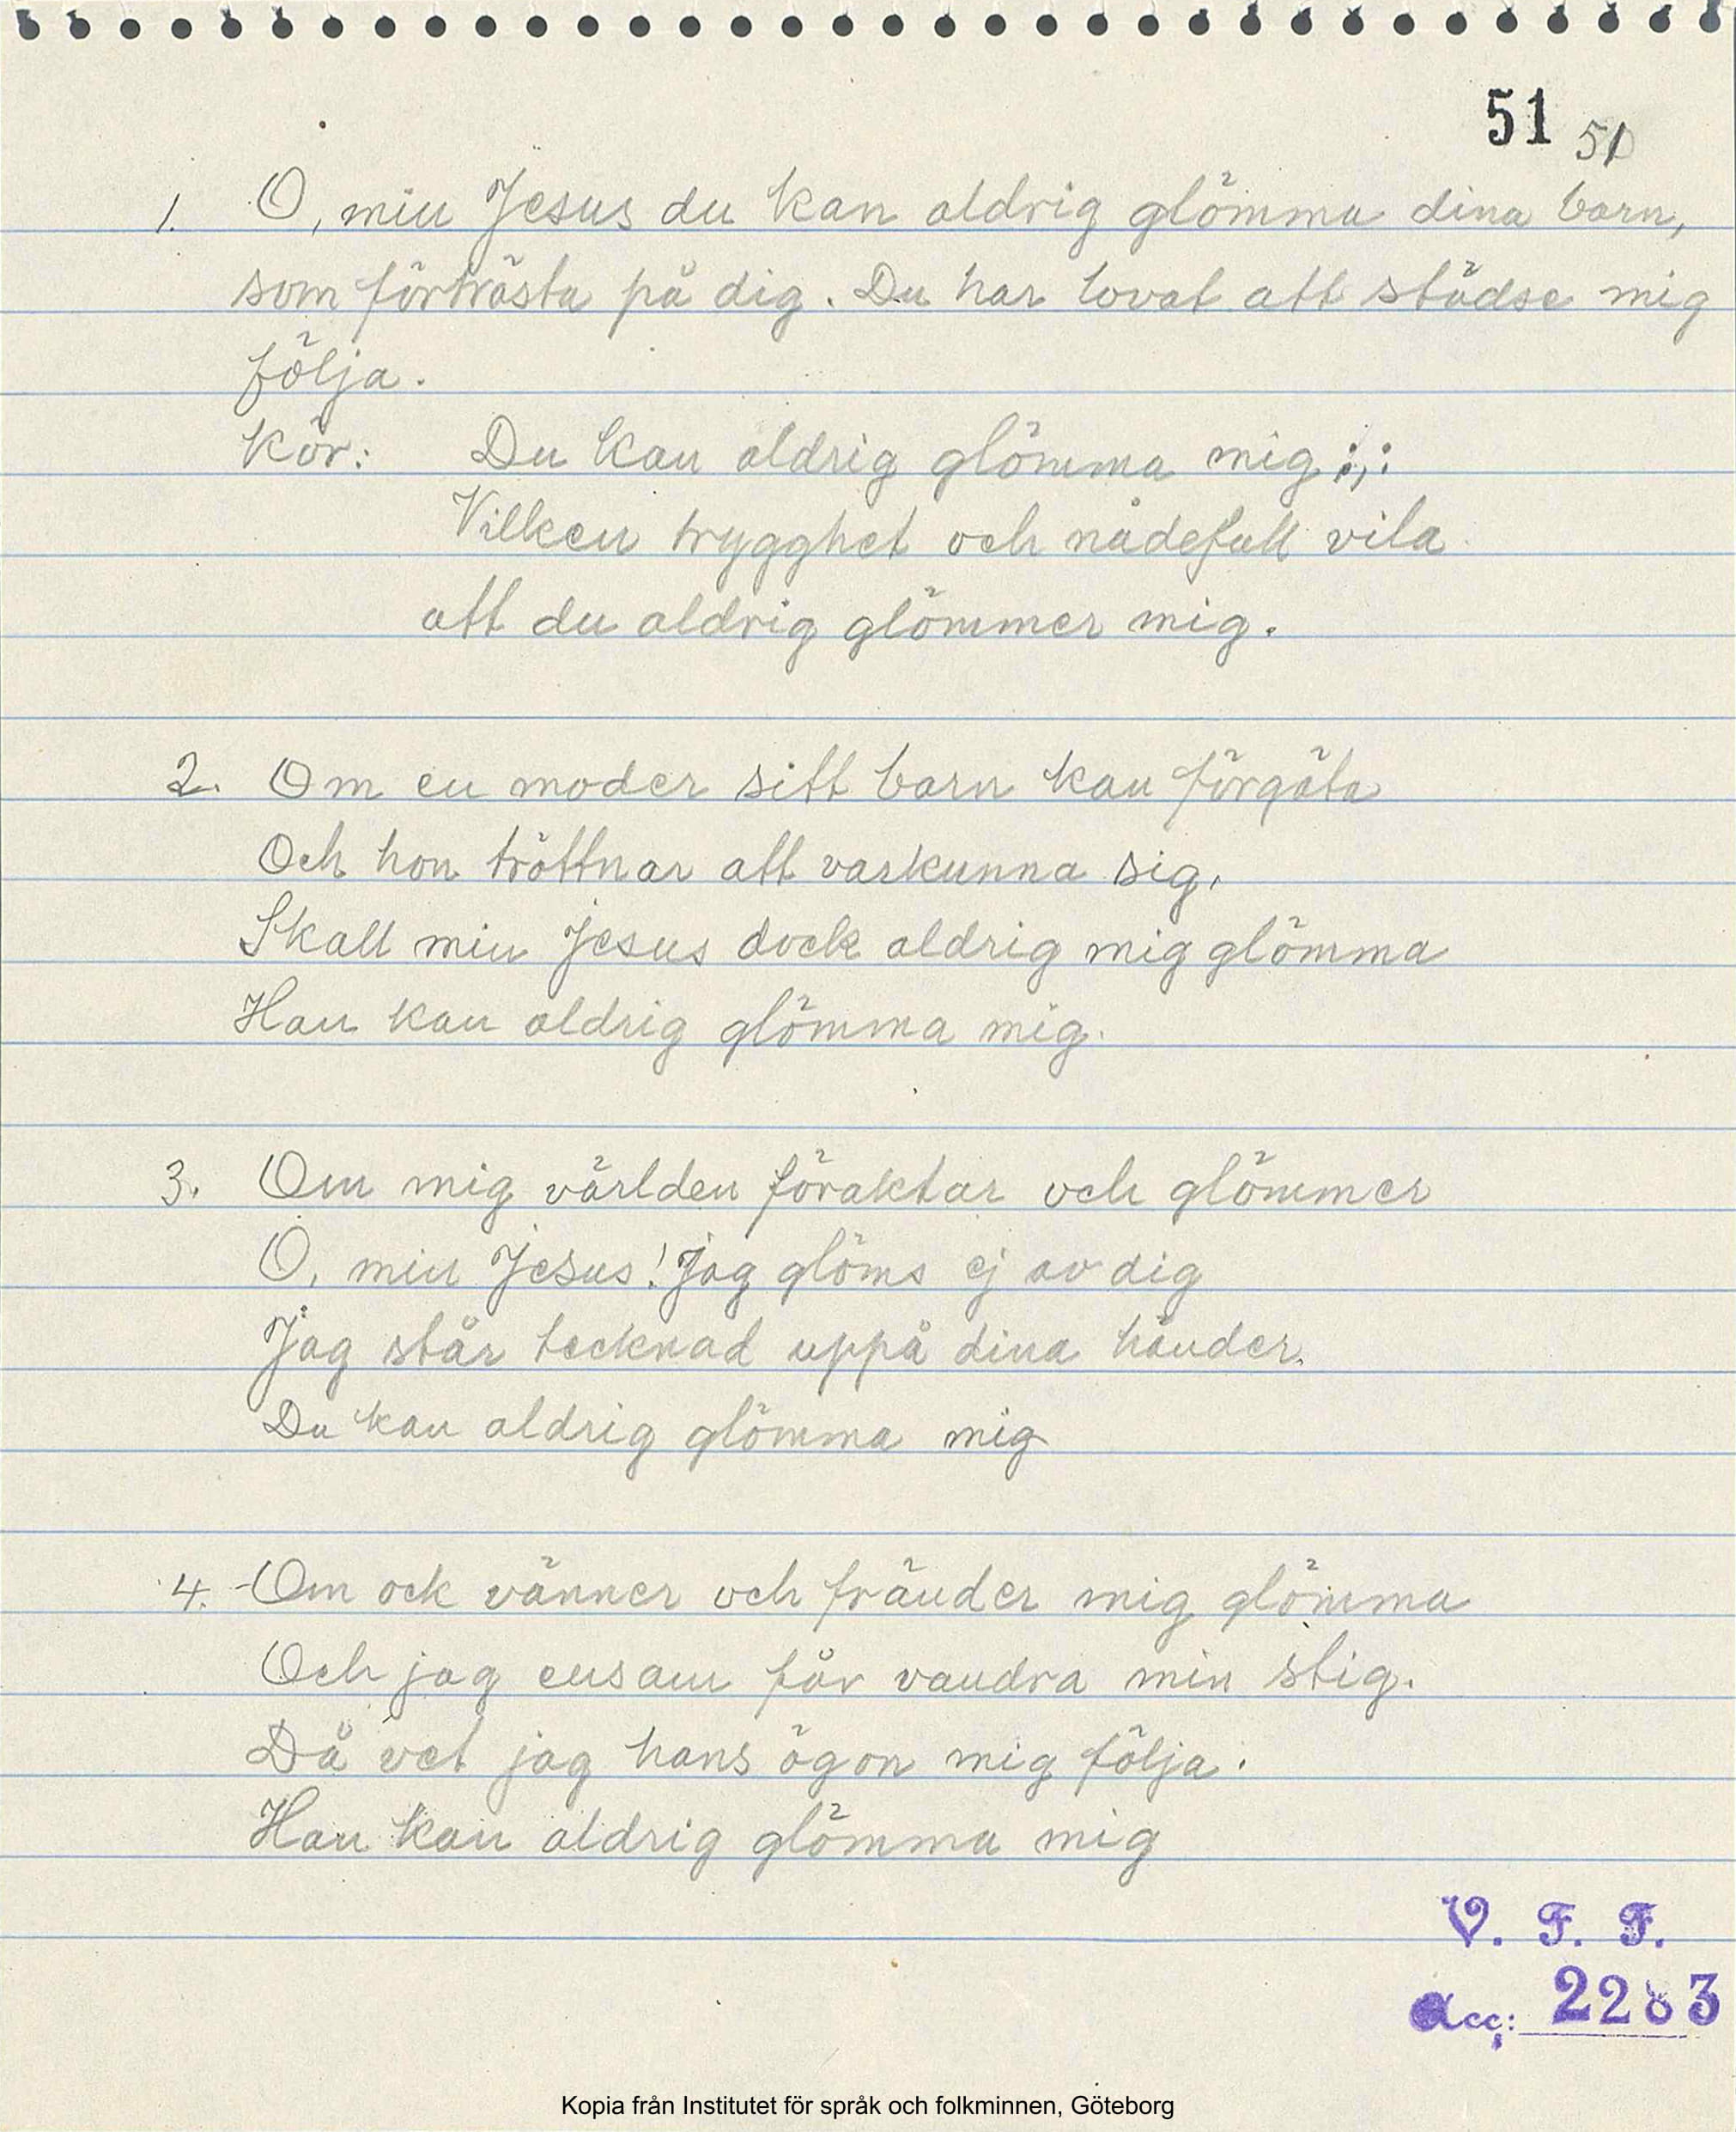 51 51
1. O, min Jesus du kan aldrig glömma dina barn,
som förtrösta på dig. Du har lovat att städse mig
följa.
Kör: Du kan aldrig glömma mig :,:
Vilken trygghet och nådefull vila
att du aldrig glömmer mig.
2. Om en moder sitt barn kan förgäta
Och hon tröttnar att varkunna sig,
Skall min Jesus dock aldrig mig glömma
Han kan aldrig glömma mig.
3. Om mig världen föraktar och glömmer
O, min Jesus! Jag glöms ej av dig
Jag står tecknad uppå dina händer.
Du kan aldrig glömma mig
4. Om ock vänner och fränder mig glömma
Och jag ensam får vandra min stig.
Då vet jag hans ögon mig följa.
Han kan aldrig glömma mig
V. F. F.
Acc: 2283
Kopia från Institutet för språk och folkminnen, Göteborg